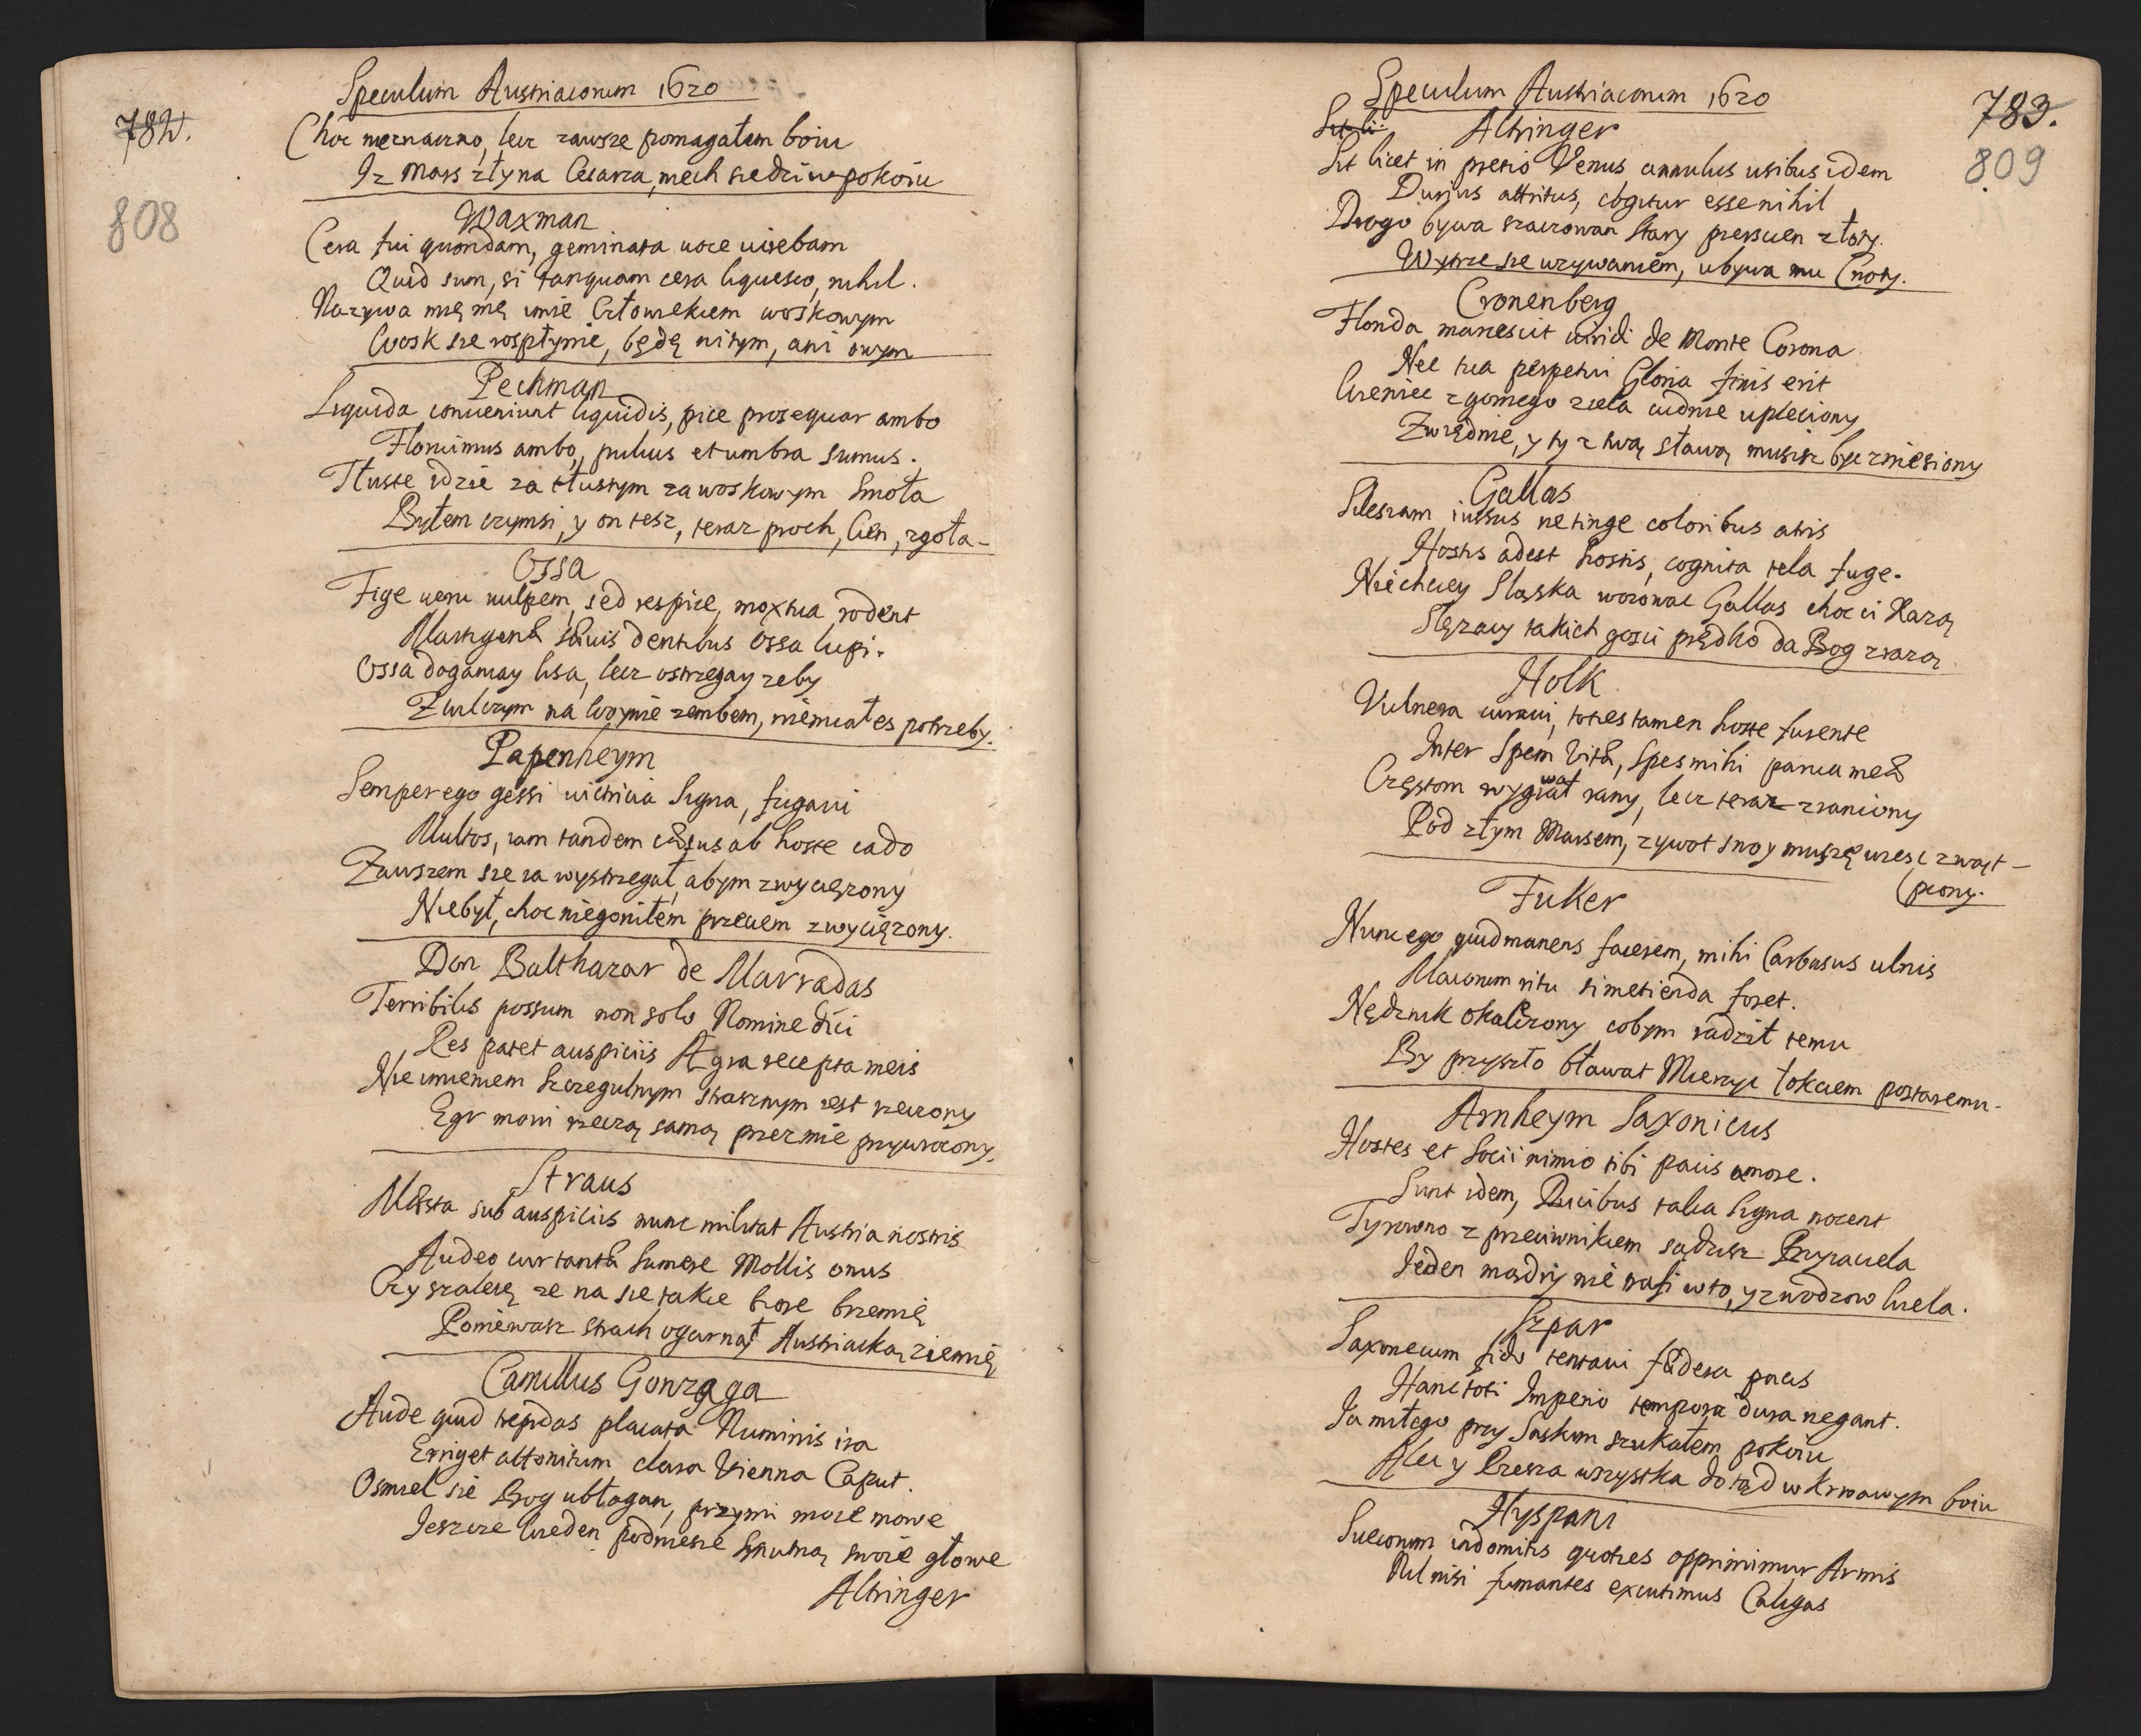 Speculum Austriacorum 1620
782.
808
Choc nieznaczno, lecz zawsze pomagałem boiu
Iz Mars zły na Cesarza, niech siedzi w pokoiu
Waxman
Cera fui quondam, geminata uoce uirebam
Quid sum, si tanquam cera liquesco, nihil.
Nazywa mię mę imie Człowiekiem woskowym
Wosk sie rospłynie, będę ni tym, ani owym
Pechman
Liquida conueniunt liquidis, pice prosequar ambo
Floruimus ambo, puluis et umbra sumus.
Tłuste idzie za tłustym za woskowym Smoła
Byłem czymsi, y on tesz, teraz proch, Cien, zgoła
Ossa
Fige ueru uulpem, sed respice, mox tua rodent
Martigenæ sæuis dentibus Ossa lupi.
Ossa dogamay lisa, lecz ostrzegay zeby
Z wilczym na Woynie zembem, niemiałes potrzeby.
Papenheym
Semper ego gessi uictricia Signa, fugaui
Multos, iam tandem cæsus ab hoste cado
Zawszem sie ia wystrzegał, abym zwyciężony
Niebył, choc niegoniłem przeciem zwyciężony.
Don Balthazar de Marradas
Terribilis possum non solo Nomine dici
Res patet auspiciis Ægra recepta meis
Nie imieniem Szczegulnym strasznym iest rzeczony
Egr mowi rzeczą samą przez mie przywrocony.
Straus
Mæsta sub auspiciis nunc militat Austria nostris
Audeo cur tantæ Sumere Mollis onus
Czy szaleię ze na sie takie biore brzemię
Poniewasz strach ogarnął Austriacką ziemię
Camillus Gonzaga
Aude quid trepidas placata Numinis ira
Erriget attonitum clara Vienna Caput.
Osmiel sie Bog ubłagan, przyimi moie mowe
Ieszcze Wieden podniesie smutną swoie głowe
Altringer
Speculum Austriacorum 1620
783.
809
Altringer
Sit licet in pretio Venus annulus usibus idem
Durius attritus, cogitur esse nihil
Drogo bywa szacowan Stary piersuen złoty.
Wytrze sie uzywaniem, ubywa mu Cnoty.
Cronenberg
Florida marcescit uiridi de Monte Corona
Nec tua perpetui Gloria finis erit
Wieniec z gornego ziela cudnie upleciony
Zwiędnie, y ty z twą sławą musisz byc zniesiony
Gallas
Silesiam iussus ne tinge coloribus atris
Hostis adest hostis, cognita tela fuge.
Niechciey Sląska woiowac Gallas choc ci Karzą
Slęzacy takich gosci prędko da Bog zrażą
Holk
Vulnera curaui, toties tamen hoste furente
Inter Spem Vitæ, Spes mihi parua meæ
Częstom wygrawał rany, lecz teraz zraniony
Pod złym Marsem, zywot swoy muszę wiesc zwąt-
(piony.
Fuker
Nunc ego quid manens facerem, mihi Carbasus ulnis
Maiorum ritu si metienda foret.
Nędznik okaliczony cobym radził temu
By przyszło bławat Mierzyc łokciem postaremu.
Arnheym Saxonicus
Hostes et Socii nimio tibi pacis amore.
Sunt idem, Ducibus talia Signa nocent
Ty rowno z przeciwnikiem sądzisz Przyiaciela
Ieden mądry nie trafi w to, y z wodzow wiela.
Szpar
Saxone cum fido tentaui fædera pacis
Hanc toti Imperio tempora dura negant.
Ia miłego przy Saskim szukałem pokoiu
Alec y Rzesza wszystka dotąd w Krwawym boiu
Hyspani
Suecorum indomitis quoties opprimimur Armis
Nil nisi fumantes excutimus Caligas